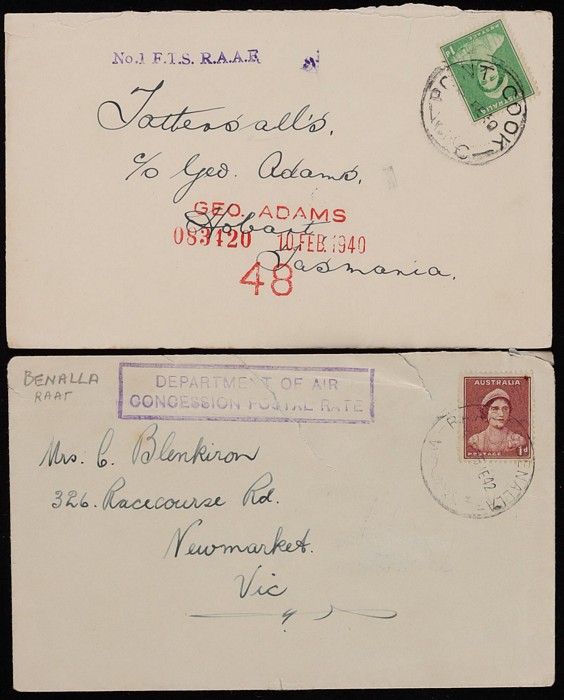 No.1 F.T.S. R.A.A.F.
POINT COOK
Tattersall's,
c/o Geo. Adams,
GEO. ADAMS
Hobart
083420 10 FEB. 1940
Tasmania.
48
BENALLA
RAAF
DEPARTMENT OF AIR
CONCESSION POSTAL RATE
AUSTRALIA
POSTAGE 1d
BENALLA
42
Mrs. C. Blenkiron
326. Racecourse Rd.
Newmarket.
Vic